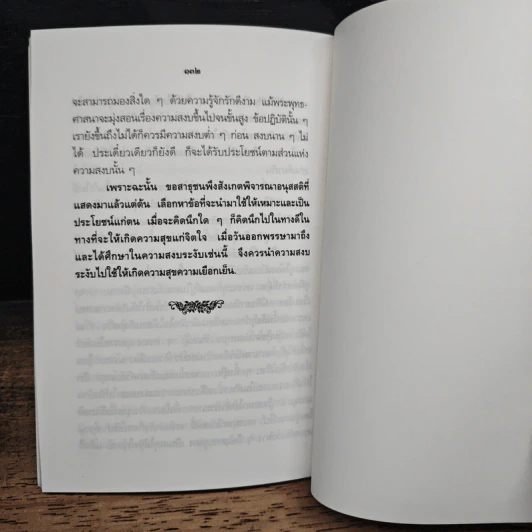 ๑๓๒
จะสามารถมองสิ่งใด ๆ ด้วยความรู้จักรักดีงาม แม้พระพุทธ-
ศาสนาจะมุ่งสอนเรื่องความสงบขึ้นไปจนขั้นสูง ข้อปฏิบัตินั้น ๆ
เรายังขึ้นถึงไม่ได้ก็ควรมีความสงบต่ำ ๆ ก่อน สงบนาน ๆ ไม่
ได้ ประเดี๋ยวเดียวก็ยังดี ก็จะได้รับประโยชน์ตามส่วนแห่ง
ความสงบนั้น ๆ
เพราะฉะนั้น ขอสาธุชนพึงสังเกตพิจารณาอนุสสติที่
แสดงมาแล้วแต่ต้น เลือกหาข้อที่จะนำมาใช้ให้เหมาะและเป็น
ประโยชน์แก่ตน เมื่อจะคิดนึกใด ๆ ก็คิดนึกไปในทางดีใน
ทางที่จะให้เกิดความสุขแก่จิตใจ เมื่อวันออกพรรษามาถึง
และได้ศึกษาในความสงบระงับเช่นนี้ จึงควรนำความสงบ
ระงับไปใช้ให้เกิดความสุขความเยือกเย็น.